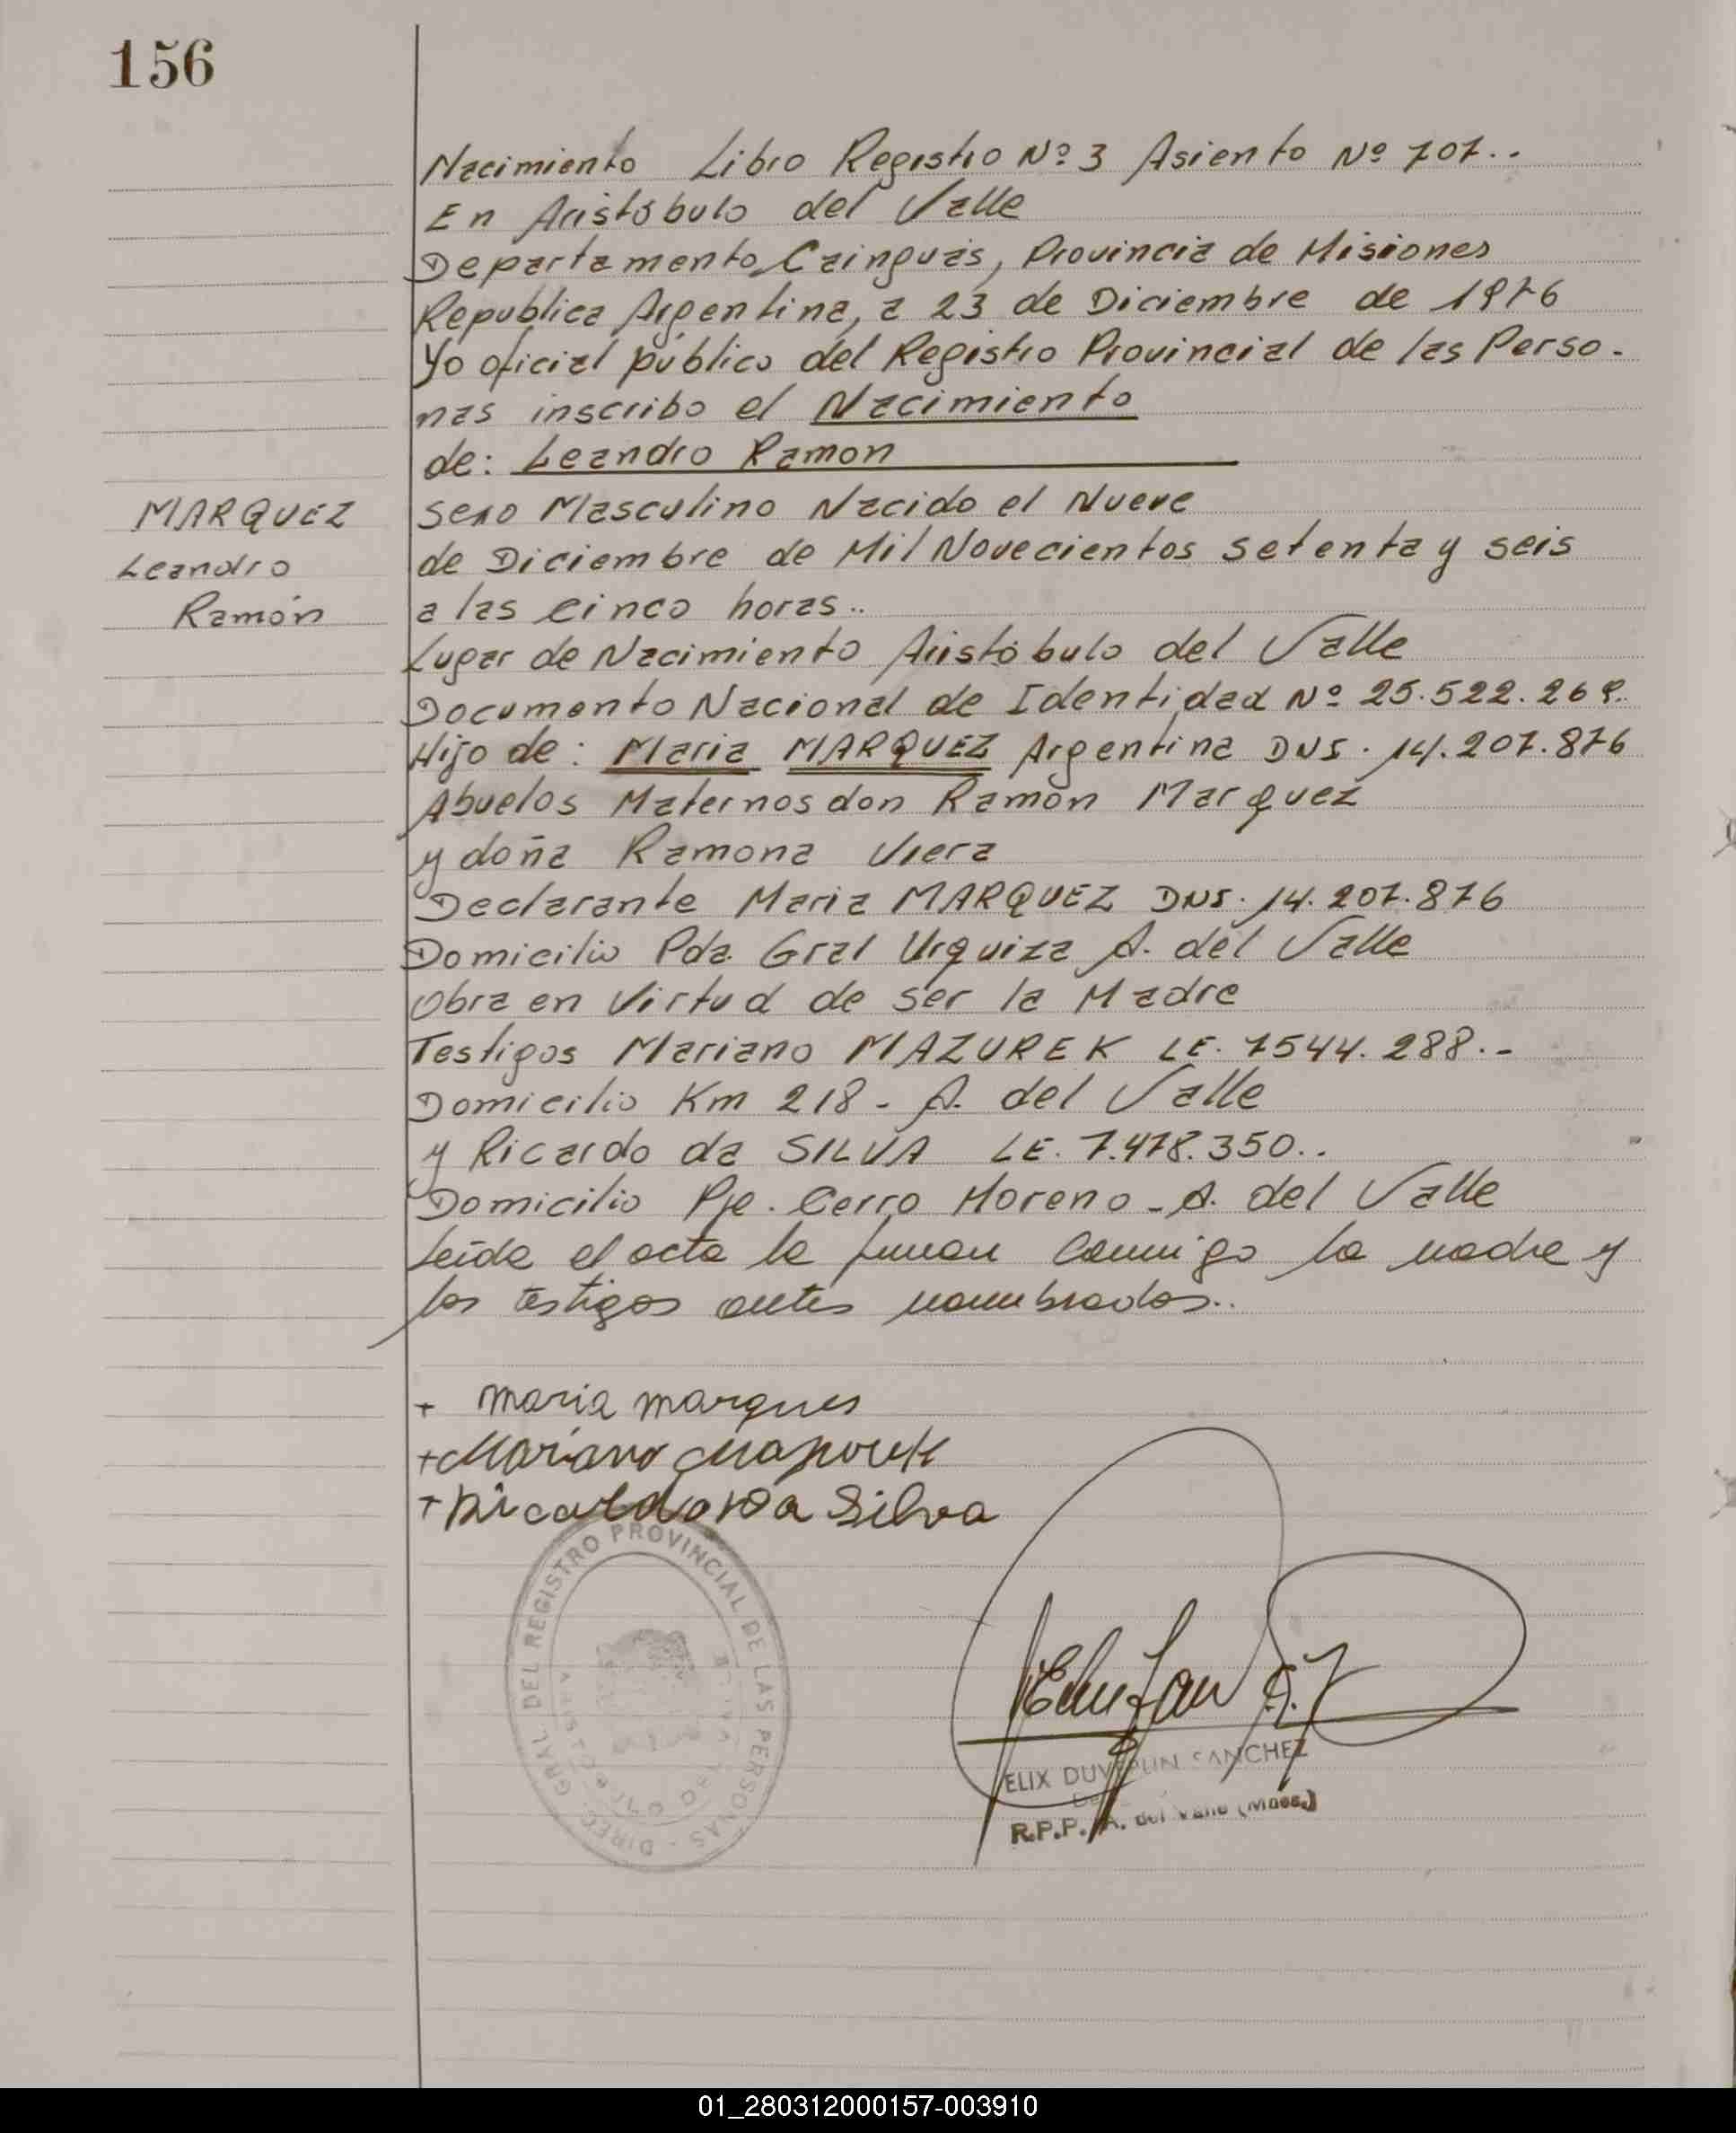 156
Nacimiento Libro Registro Nº 3 Asiento Nº 707..
En Aristóbulo del Valle
Departamento Cainguás, Provincia de Misiones
Republica Argentina, a 23 de Diciembre de 1976
Yo oficial público del Registro Provincial de las Perso-
nas inscribo el Nacimiento
de: Leandro Ramon
MARQUEZ
Leandro
Ramón
Sexo Masculino Nacido el Nueve
de Diciembre de Mil Novecientos setenta y seis
a las cinco horas..
Lugar de Nacimiento Aristóbulo del Valle
Documento Nacional de Identidad Nº 25.522.269.
Hijo de: Maria MARQUEZ Argentina DNI. 14.207.876
Abuelos Maternos don Ramón Marquez
y doña Ramona Viera
Declarante Maria MARQUEZ DNI. 14.207.876
Domicilio Pda. Gral Urquiza A. del Valle
Obra en Virtud de ser la Madre
Testigos Mariano MAZUREK LE. 7544.288.-
Domicilio Km 218 - A. del Valle
y Ricardo da SILVA LE. 7.478.350..
Domicilio Pje. Cerro Moreno - A. del Valle
Leída el acta la firman Conmigo la madre y
los testigos antes nombrados..
+ maria marques
+ Mariano
+ Ricardo Da Silva
DIREC. GRAL. DEL REGISTRO PROVINCIAL DE LAS PERSONAS -
ELIX DUVERLIN SANCHEZ
R.P.P. A. del Valle (Mnes.)
01_280312000157-003910